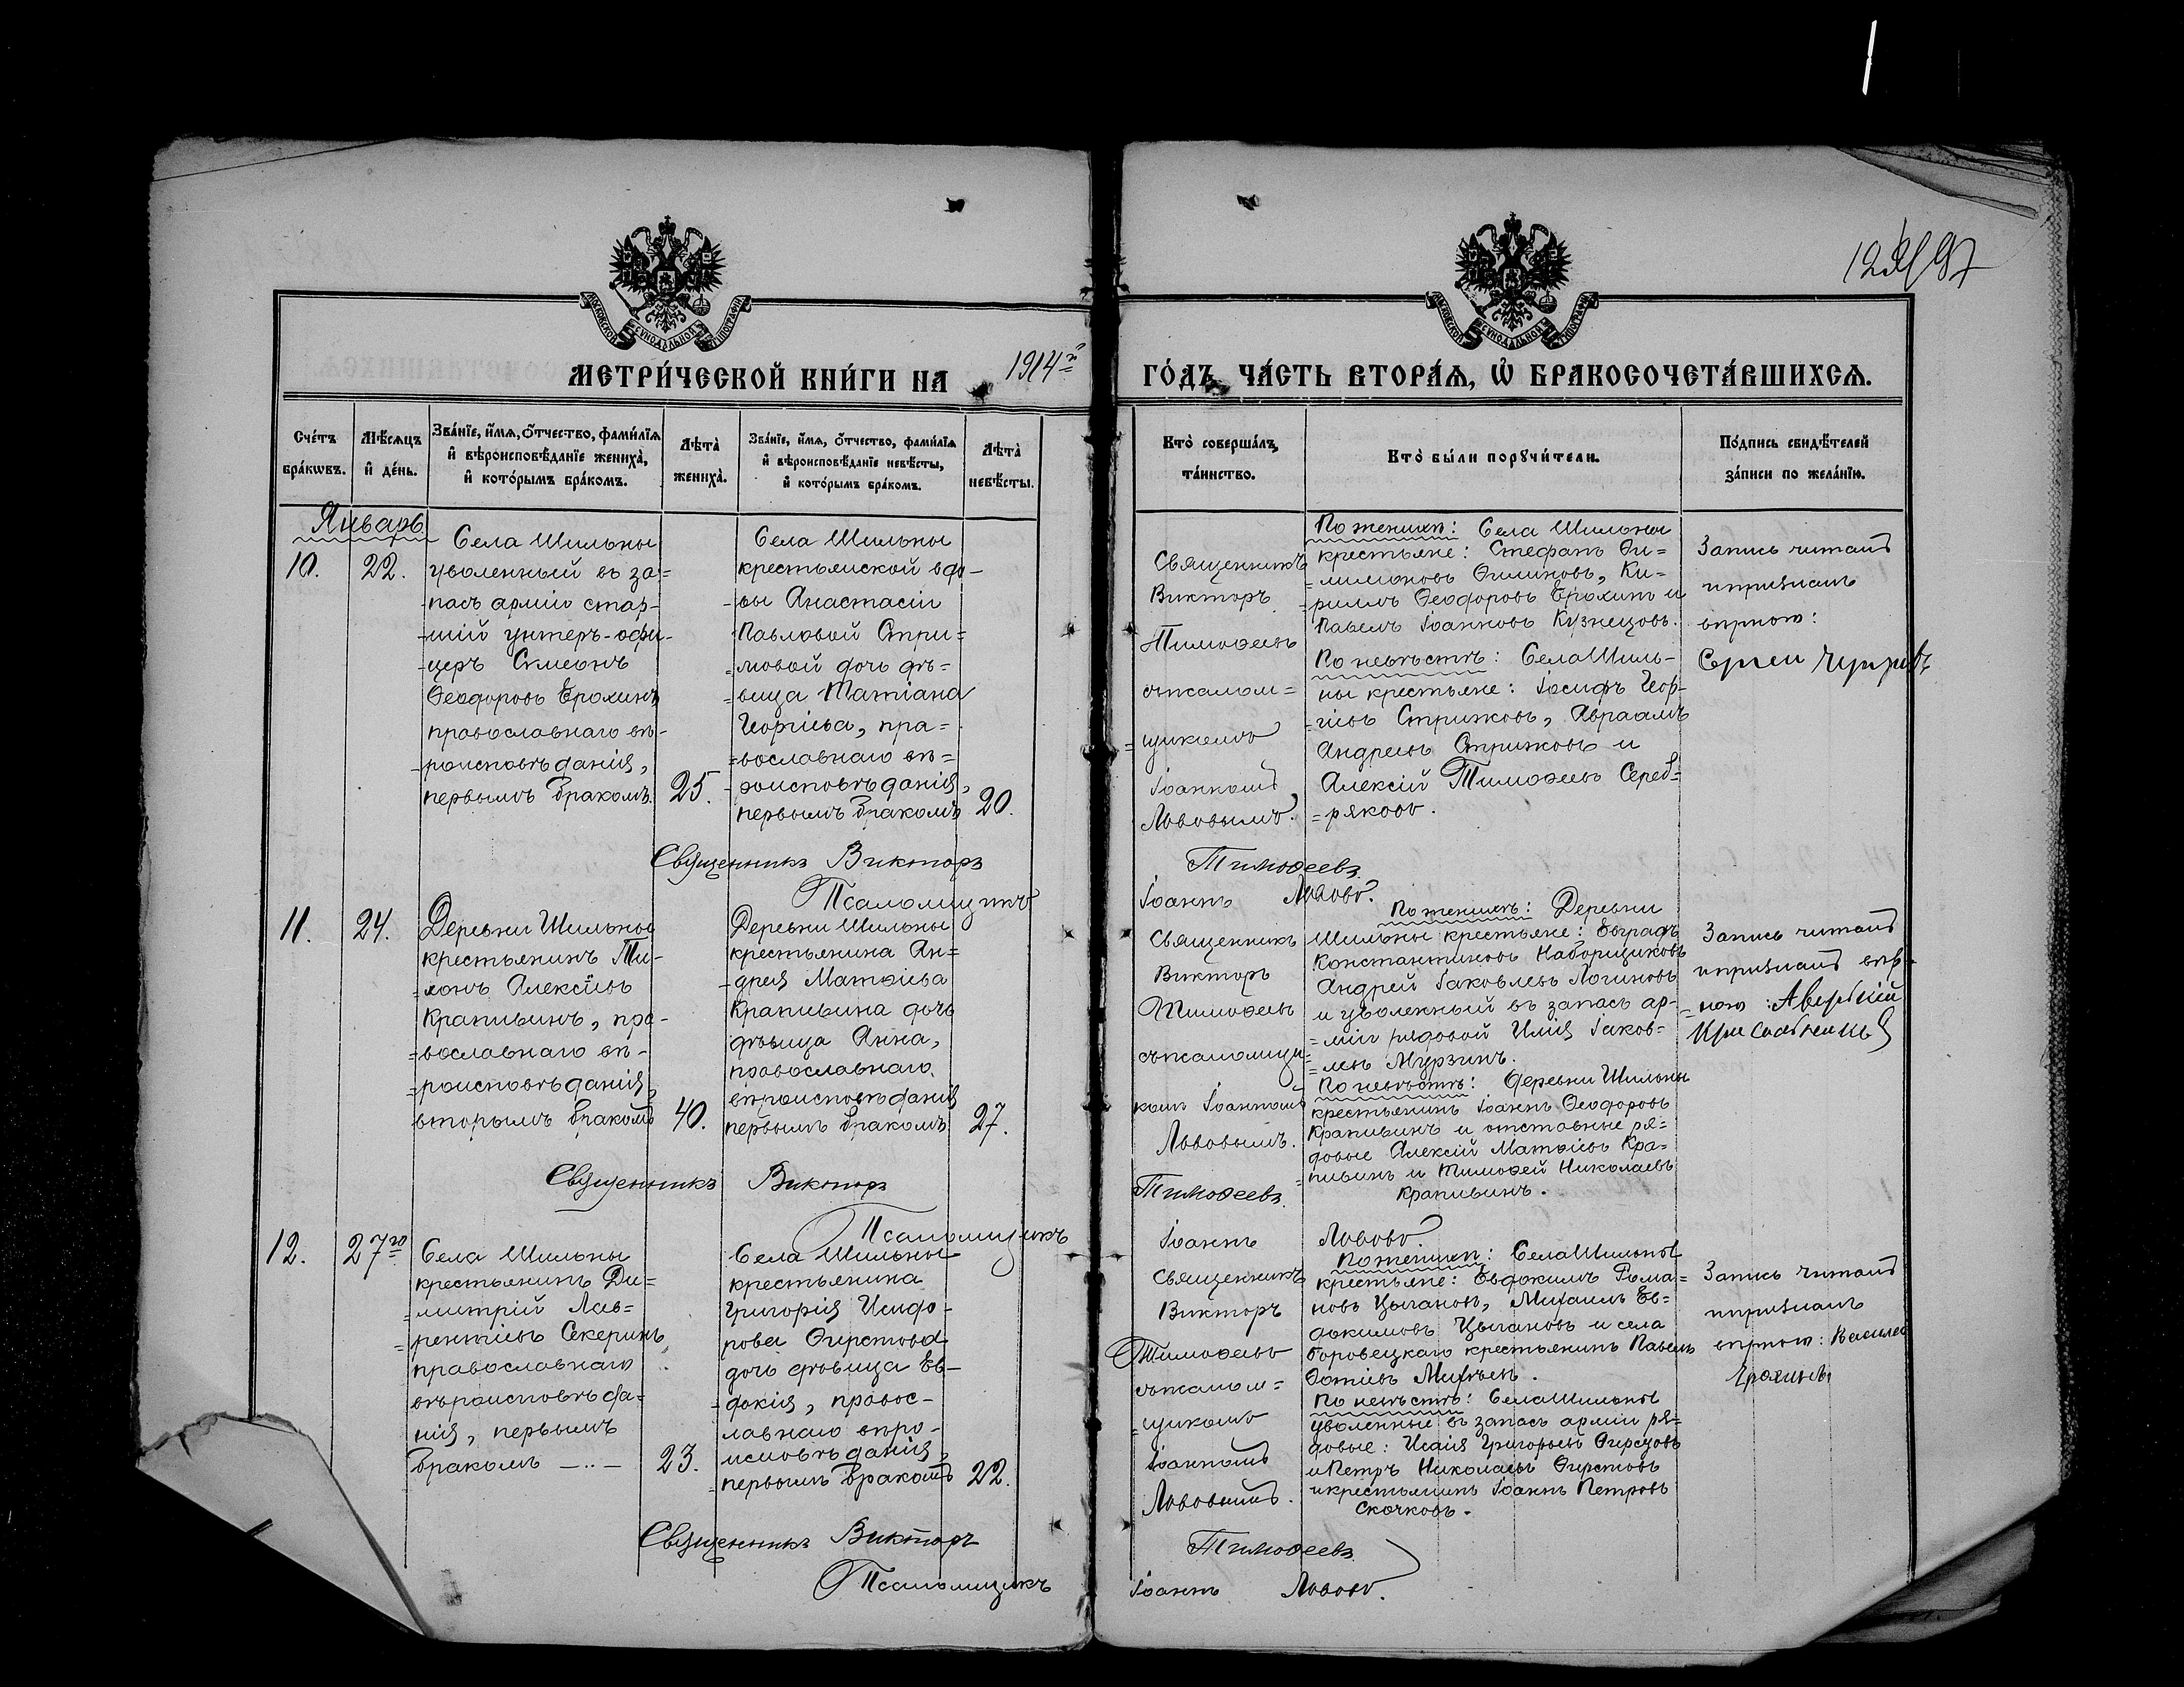 12 97
МОСКОВСКОЙ СѴНОДАЛЬНОЙ ТИПОГРАФІИ
МОСКОВСКОЙ СѴНОДАЛЬНОЙ ТИПОГРАФІИ
МЕТРИ́ЧЕСКОЙ КНИ́ГИ НА 1914 го
ГО́ДЪ, ЧА́СТЬ ВТОРА́Ѧ, Ѡ҆ БРАКОСОЧЕТА́ВШИХСѦ.
Сче́тъ
бра́кѡвъ.
Мѣ́сѧцъ
и҆ де́нь.
Зва́нїе, и҆́мѧ, о҆́тчество, фами́лїѧ
и҆ вѣроисповѣ́данїе жениха̀,
и҆ кото́рымъ бра́комъ.
Лѣта̀
жениха̀.
Зва́нїе, и҆́мѧ, о҆́тчество, фами́лїѧ
и҆ вѣроисповѣ́данїе невѣ́сты,
и҆ кото́рымъ бра́комъ.
Лѣта̀
невѣ́сты.
Кто̀ соверша́лъ
та́инство.
Кто̀ бы́ли порꙋчи́тели.
По́дпись свидѣ́телей
за́писи по жела́нїю.
Январь
10.
22.
Села Шильны
уволенный въ за=
-пасъ арміи стар-
-шій унтеръ-офи-
-церъ Симеонъ
Ѳеодоровъ Ерохинъ
православнаго вѣ-
-роисповѣданія,
первымъ бракомъ.
25.
Села Шильны
крестьянской вдо-
-вы Анастасіи
Павловой Стри=
=жовой дочь дѣ=
=вица Татіана
Георгіева, пра=
=вославнаго вѣ=
-роисповѣданія,
первымъ бракомъ
20.
Священникъ
Викторъ
Тимоѳеевъ
съ псалом=
=щикомъ
Іоанномъ
Львовымъ.
По женихѣ: Села Шильны
крестьяне: Стефанъ Фи=
=лимоновъ Филиновъ, Ки=
=риллъ Ѳеодоровъ Ерохинъ и
Павелъ Іоанновъ Кузнецовъ.
По невѣстѣ: Села Шиль-
ны крестьяне: Іосифъ Геор-
=гіевъ Стрижовъ, Авраамъ
Андреевъ Стрижовъ и
Алексій Тимоѳеевъ Сереб=
=ряковъ.
Запись читалъ
и призналъ
вѣрною:
Сергей
Священникъ Викторъ Тимоѳеевъ
Псаломщикъ Іоаннъ Львовъ.
11.
24.
Деревни Шильны
крестьянинъ Ти-
=хонъ Алексіевъ
Крапивинъ, пра-
=вославнаго вѣ-
=роисповѣданія,
вторымъ бракомъ
40.
Деревни Шильны
крестьянина Ан=
-дрея Матѳіева
Крапивина дочь
дѣвица Анна,
православнаго
вѣроисповѣданія
первымъ бракомъ
27.
Священникъ
Викторъ
Тимоѳеевъ
съ псаломщи=
комъ Іоанномъ
Львовымъ.
По женихѣ: Деревни
Шильны крестьяне: Евграфъ
Константиновъ Наборщиковъ
Андрей Іаковлевъ Логиновъ
и уволенный въ запасъ ар-
=міи рядовой Илія Іаков=
=левъ Мурзинъ.
По невѣстѣ: деревни Шильны
крестьянинъ Іоаннъ Ѳеодоровъ
Крапивинъ и отставные ря=
довые Алексій Матѳіевъ Кра=
=пивинъ и Тимоѳей Николаевъ
Крапивинъ.
Запись читалъ
и призналъ вѣр-
=ною: Аверкій
Священникъ Викторъ Тимоѳеевъ
Псаломщикъ Іоаннъ Львовъ
12.
27го
Села Шильны
крестьянинъ Ди=
=митрій Лав=
=рентіевъ Секеринъ,
православнаго
вѣроисповѣда=
нія, первымъ
бракомъ
23.
Села Шильны
крестьянина
Григорія Исидо-
рова Фирстова
дочь дѣвица Ев-
-докія, правос-
лавнаго вѣро-
исповѣданія,
первымъ бракомъ
22.
Священникъ
Викторъ
Тимоѳеевъ
съ псалом=
=щикомъ
Іоанномъ
Львовымъ.
По женихѣ: Села Шильны
крестьяне: Евдокимъ Рома=
новъ Цыгановъ, Михаилъ Ев=
докимовъ Цыгановъ и села
Боровецкаго крестьянинъ Павелъ
Фотіевъ Михѣевъ.
По невѣстѣ: Села Шильны
уволенные въ запасъ арміи ря=
довые: Исаія Григорьевъ Фирстовъ
и Петръ Николаевъ Фирстовъ
и крестьянинъ Іоаннъ Петровъ
Скочковъ.
Запись читалъ
и призналъ
вѣрною: Василей
Ерохинъ
Священникъ Викторъ Тимоѳеевъ
Псаломщикъ Іоаннъ Львовъ.